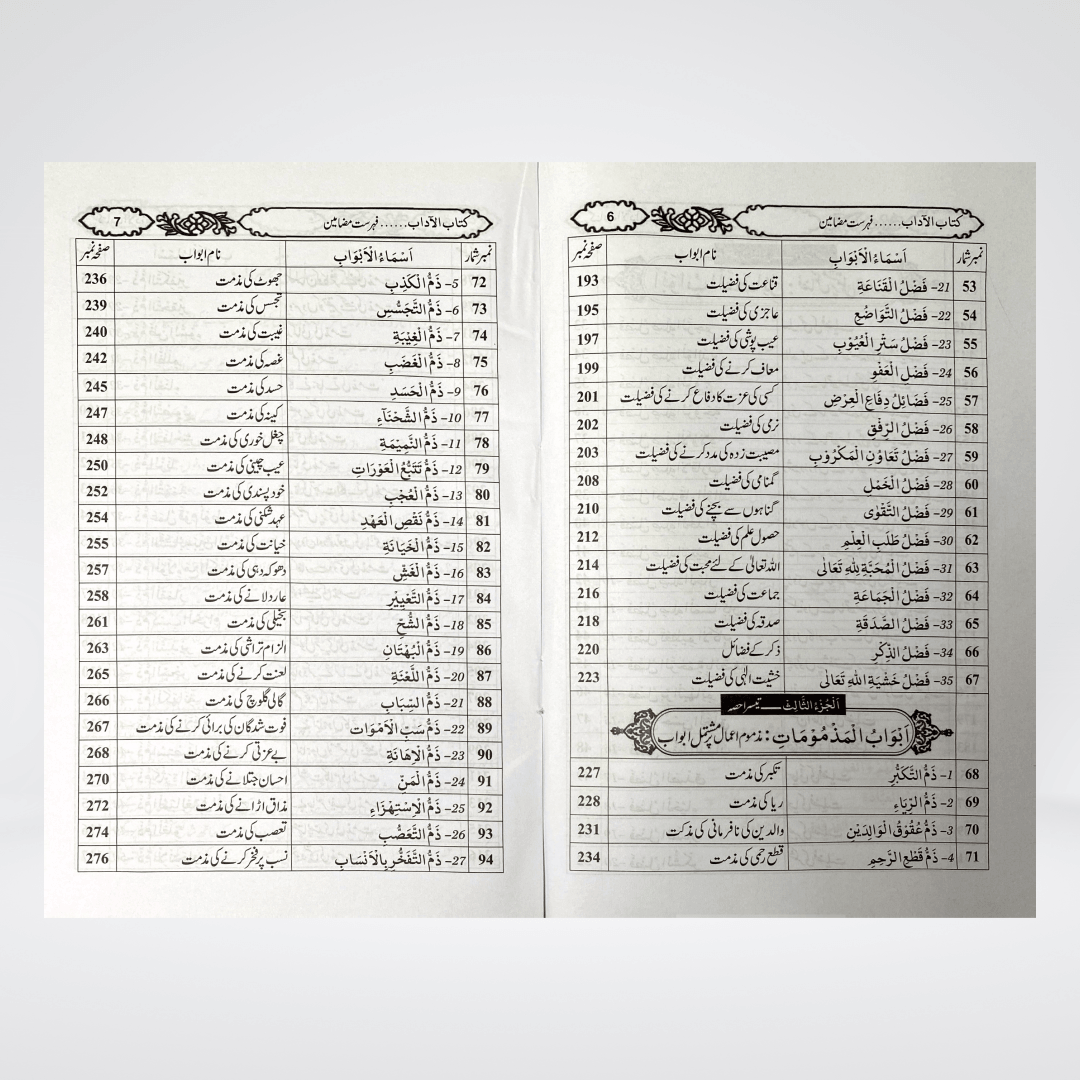 6 کتاب الآداب...... فہرست مضامین
نمبر شمار اَسْمَاءُ الْاَبْوَابِ نام ابواب صفحہ نمبر
53 21- فَضْلُ الْقَنَاعَةِ قناعت کی فضیلت 193
54 22- فَضْلُ التَّوَاضُعِ عاجزی کی فضیلت 195
55 23- فَضْلُ سَتْرِ الْعُيُوْبِ عیب پوشی کی فضیلت 197
56 24- فَضْلِ الْعَفْوِ معاف کرنے کی فضیلت 199
57 25- فَضَائِلُ دِفَاعِ الْعِرْضِ کسی کی عزت کا دفاع کرنے کی فضیلت 201
58 26- فَضْلُ الرِّفْقِ نرمی کی فضیلت 202
59 27- فَضْلُ تَعَاوُنِ الْمَكْرُوْبِ مصیبت زدہ کی مدد کرنے کی فضیلت 203
60 28- فَضْلُ الْخَمْلِ گمنامی کی فضیلت 208
61 29- فَضْلُ التَّقْوٰى گناہوں سے بچنے کی فضیلت 210
62 30- فَضْلُ طَلَبِ الْعِلْمِ حصول علم کی فضیلت 212
63 31- فَضْلُ الْمُحَبَّةِ لِلّٰهِ تَعَالٰى اللہ تعالیٰ کے لئے محبت کی فضیلت 214
64 32- فَضْلُ الْجَمَاعَةِ جماعت کی فضیلت 216
65 33- فَضْلُ الصَّدَقَةِ صدقہ کی فضیلت 218
66 34- فَضْلُ الذِّكْرِ ذکر کے فضائل 220
67 35- فَضْلُ خَشْيَةِ اللّٰهِ تَعَالٰى خشیت الٰہی کی فضیلت 223
اَلْجُزْءُ الثَّالِثُ ـــ تیسرا حصہ
اَبْوَابُ الْمَذْمُوْمَاتِ: مذموم اعمال پر مشتمل ابواب
68 1- ذَمُّ التَّكَبُّرِ تکبر کی مذمت 227
69 2- ذَمُّ الرِّيَاءِ ریا کی مذمت 228
70 3- ذَمُّ عُقُوْقِ الْوَالِدَيْنِ والدین کی نافرمانی کی مذکت 231
71 4- ذَمُّ قَطْعِ الرَّحِمِ قطع رحمی کی مذمت 234
7 کتاب الآداب...... فہرست مضامین
نمبر شمار اَسْمَاءُ الْاَبْوَابِ نام ابواب صفحہ نمبر
72 5- ذَمُّ الْكَذِبِ جھوٹ کی مذمت 236
73 6- ذَمُّ التَّجَسُّسِ تجسس کی مذمت 239
74 7- ذَمُّ الْغِيْبَةِ غیبت کی مذمت 240
75 8- ذَمُّ الْغَضَبِ غصہ کی مذمت 242
76 9- ذَمُّ الْحَسَدِ حسد کی مذمت 245
77 10- ذَمُّ الشَّحْنَآءِ کینہ کی مذمت 247
78 11- ذَمُّ النَّمِيْمَةِ چغل خوری کی مذمت 248
79 12- ذَمُّ تَتَبُّعِ الْعَوْرَاتِ عیب چینی کی مذمت 250
80 13- ذَمُّ الْعُجْبِ خود پسندی کی مذمت 252
81 14- ذَمُّ نَقْصِ الْعَهْدِ عہد شکنی کی مذمت 254
82 15- ذَمُّ الْخَيَانَةِ خیانت کی مذمت 255
83 16- ذَمُّ الْغَشِّ دھوکہ دہی کی مذمت 257
84 17- ذَمُّ التَّعْيِيْرِ عار دلانے کی مذمت 258
85 18- ذَمُّ الشُّحِّ بخیلی کی مذمت 261
86 19- ذَمُّ الْبُهْتَانِ الزام تراشی کی مذمت 263
87 20- ذَمُّ اللَّعْنَةِ لعنت کرنے کی مذمت 265
88 21- ذَمُّ السِّبَابِ گالی گلوچ کی مذمت 266
89 22- ذَمُّ سَبِّ الْاَمْوَات فوت شدگان کی برائی کرنے کی مذمت 267
90 23- ذَمُّ الْاِهَانَةِ بے عزتی کرنے کی مذمت 268
91 24- ذَمُّ الْمَنِّ احسان جتلانے کی مذمت 270
92 25- ذَمُّ الْاِسْتِهْزَاءِ مذاق اڑانے کی مذمت 272
93 26- ذَمُّ التَّعَصُّبِ تعصب کی مذمت 274
94 27- ذَمُّ التَّفَخُّرِ بِالْاَنْسَابِ نسب پر فخر کرنے کی مذمت 276